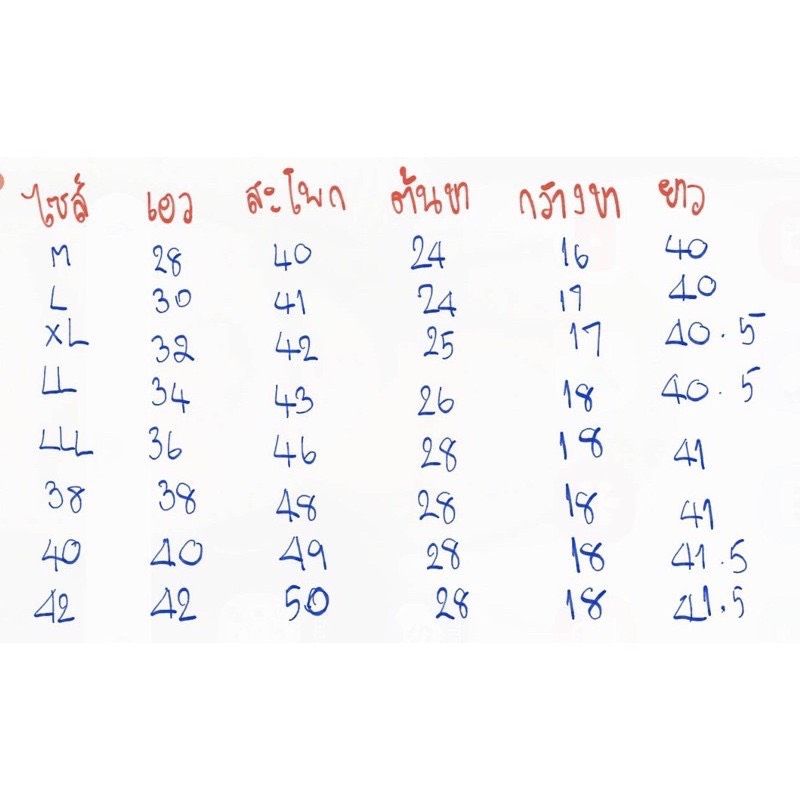 ไซส์ เอว สะโพก ต้นขา กว้างขา ยาว
M 28 40 24 16 40
L 30 41 24 17 40
XL 32 42 25 17 40.5
LL 34 43 26 18 40.5
LLL 36 46 28 18 41
38 38 48 28 18 41
40 40 49 28 18 41.5
42 42 50 28 18 41.5